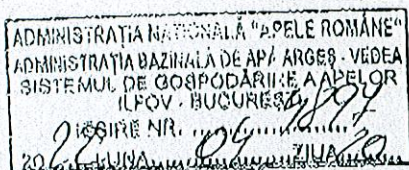 ADMINISTRAȚIA NAȚIONALĂ "APELE ROMÂNE"
ADMINISTRAȚIA BAZINALĂ DE APĂ ARGEȘ - VEDEA
SISTEMUL DE GOSPODĂRIRE A APELOR
ILFOV - BUCUREȘTI
IEȘIRE NR. 4897
2022 LUNA 04 ZIUA 20